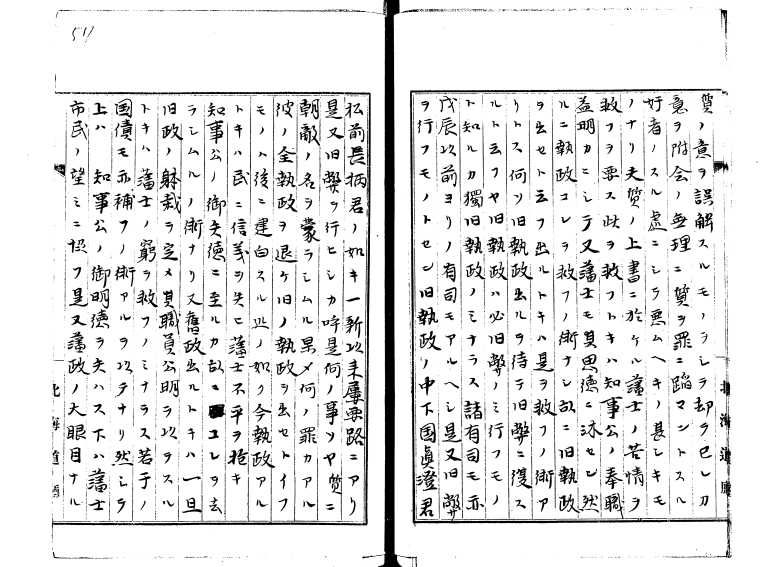 質ノ意ヲ誤解スルモノヲシテ却テ己レカ
意ヲ附会ノ無理ニ質ヲ罪ニ蹈マントスル
好者ノスル處ニシテ悪ムヘキノ甚シキモ
ノナリ夫質ノ上書ニ於ケル藩士ノ苦情ヲ
救フヲ要ス此ヲ救フトキハ知事公ノ奉職
益明カニシテ又藩士モ其恩徳ニ沐セン然
ルニ執政コレヲ救フノ術ナシ故ニ旧執政
ヲ出セト云フ出ルトキハ是ヲ救フノ術ア
リトス何ソ旧執政出ルヲ待テ旧弊ニ復ス
ルト云フヤ旧執政ハ必旧弊ノミ行フモノ
ト知ルカ獨旧執政ノミナラス諸有司モ亦
戊辰以前ヨリノ有司モアルヘシ是又旧弊
ヲ行フモノトセン旧執政ノ中下国貞澄君
松前長柄君ノ如キ一新以来屡要路ニアリ
是又旧弊ヲ行ヒシカ吁是何ノ事ソヤ質ニ
朝敵ノ名ヲ蒙ラシムル果メ何ノ罪カアル
彼ノ全執政ヲ退ケ旧ノ執政ヲ出セトイフ
モノハ後ニ建白スル此ノ如ク今執政アル
トキハ民ニ信義ヲ失ヒ藩士不平ヲ抱キ
知事公ノ御失徳ニ至ルカ故ニコレヲ去
ラシムルノ術ナリ又舊政出ルトキハ一旦
旧政ノ躰裁ヲ定メ其職員公明ヲ以ヲスル
トキハ藩士ノ窮ヲ救フノミナラス若干ノ
国債モ亦補フノ術アルヲ以テナリ然シテ
上ハ 知事公ノ御明徳ヲ失ハス下ハ藩士
市民ノ望ミニ恊フ是又藩政ノ大眼目ナル
北海道廳